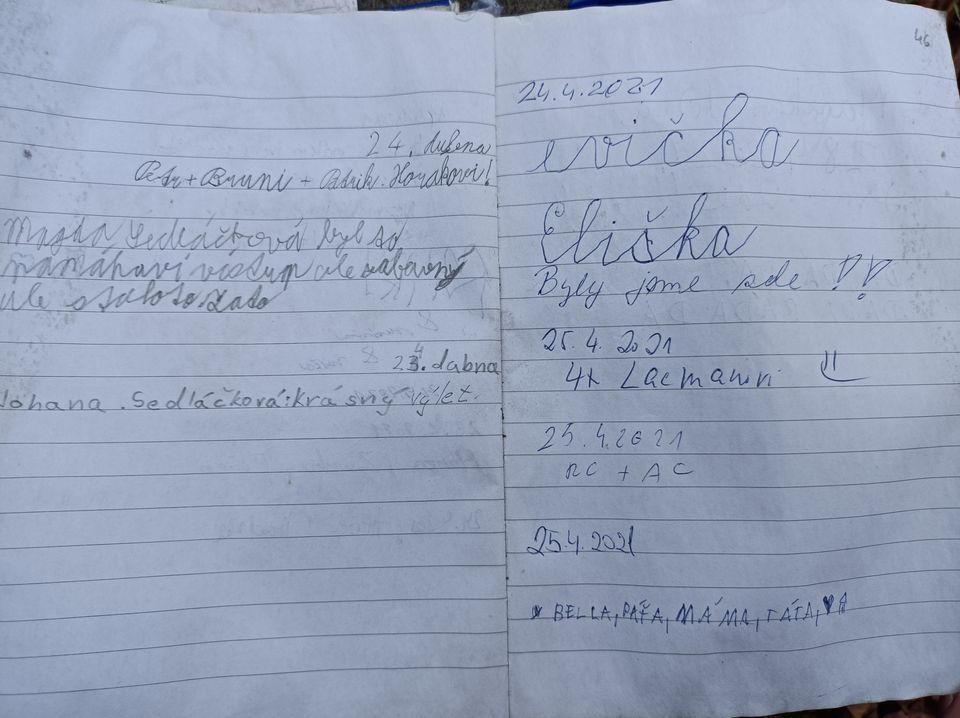 24. dubna
Petr + Bruni + Patrik Horákovi!
Magda Sedláčková byl to
namáhaví vístup ale zábavný
ale stálo to zato
24. dabna
Johana. Sedláčková: krásný výlet.
46
24.4.2021
evička
Eliška
Byly jsme zde !!
25.4.2021
4x Lacmanovi
25.4.2021
RC + AC
25.4.2021
BELLA, PÁŤA, MÁMA, TÁTA,